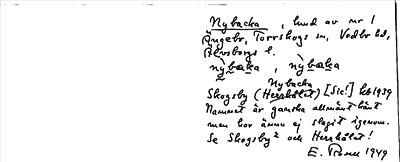 Nybacka, hmd av nr 1
Ängebr, Torrskogs sn, Vedbo hd,
Älvsborgs l.
nỳbaka, nỳbaka
Nybacka
Skogsby (Herrhålet) [Sic!] kb 1939
Namnet är ganska allmänt känt
men har ännu ej slagit igenom.
Se Skogsby² och Herrhålet!
E. 1949